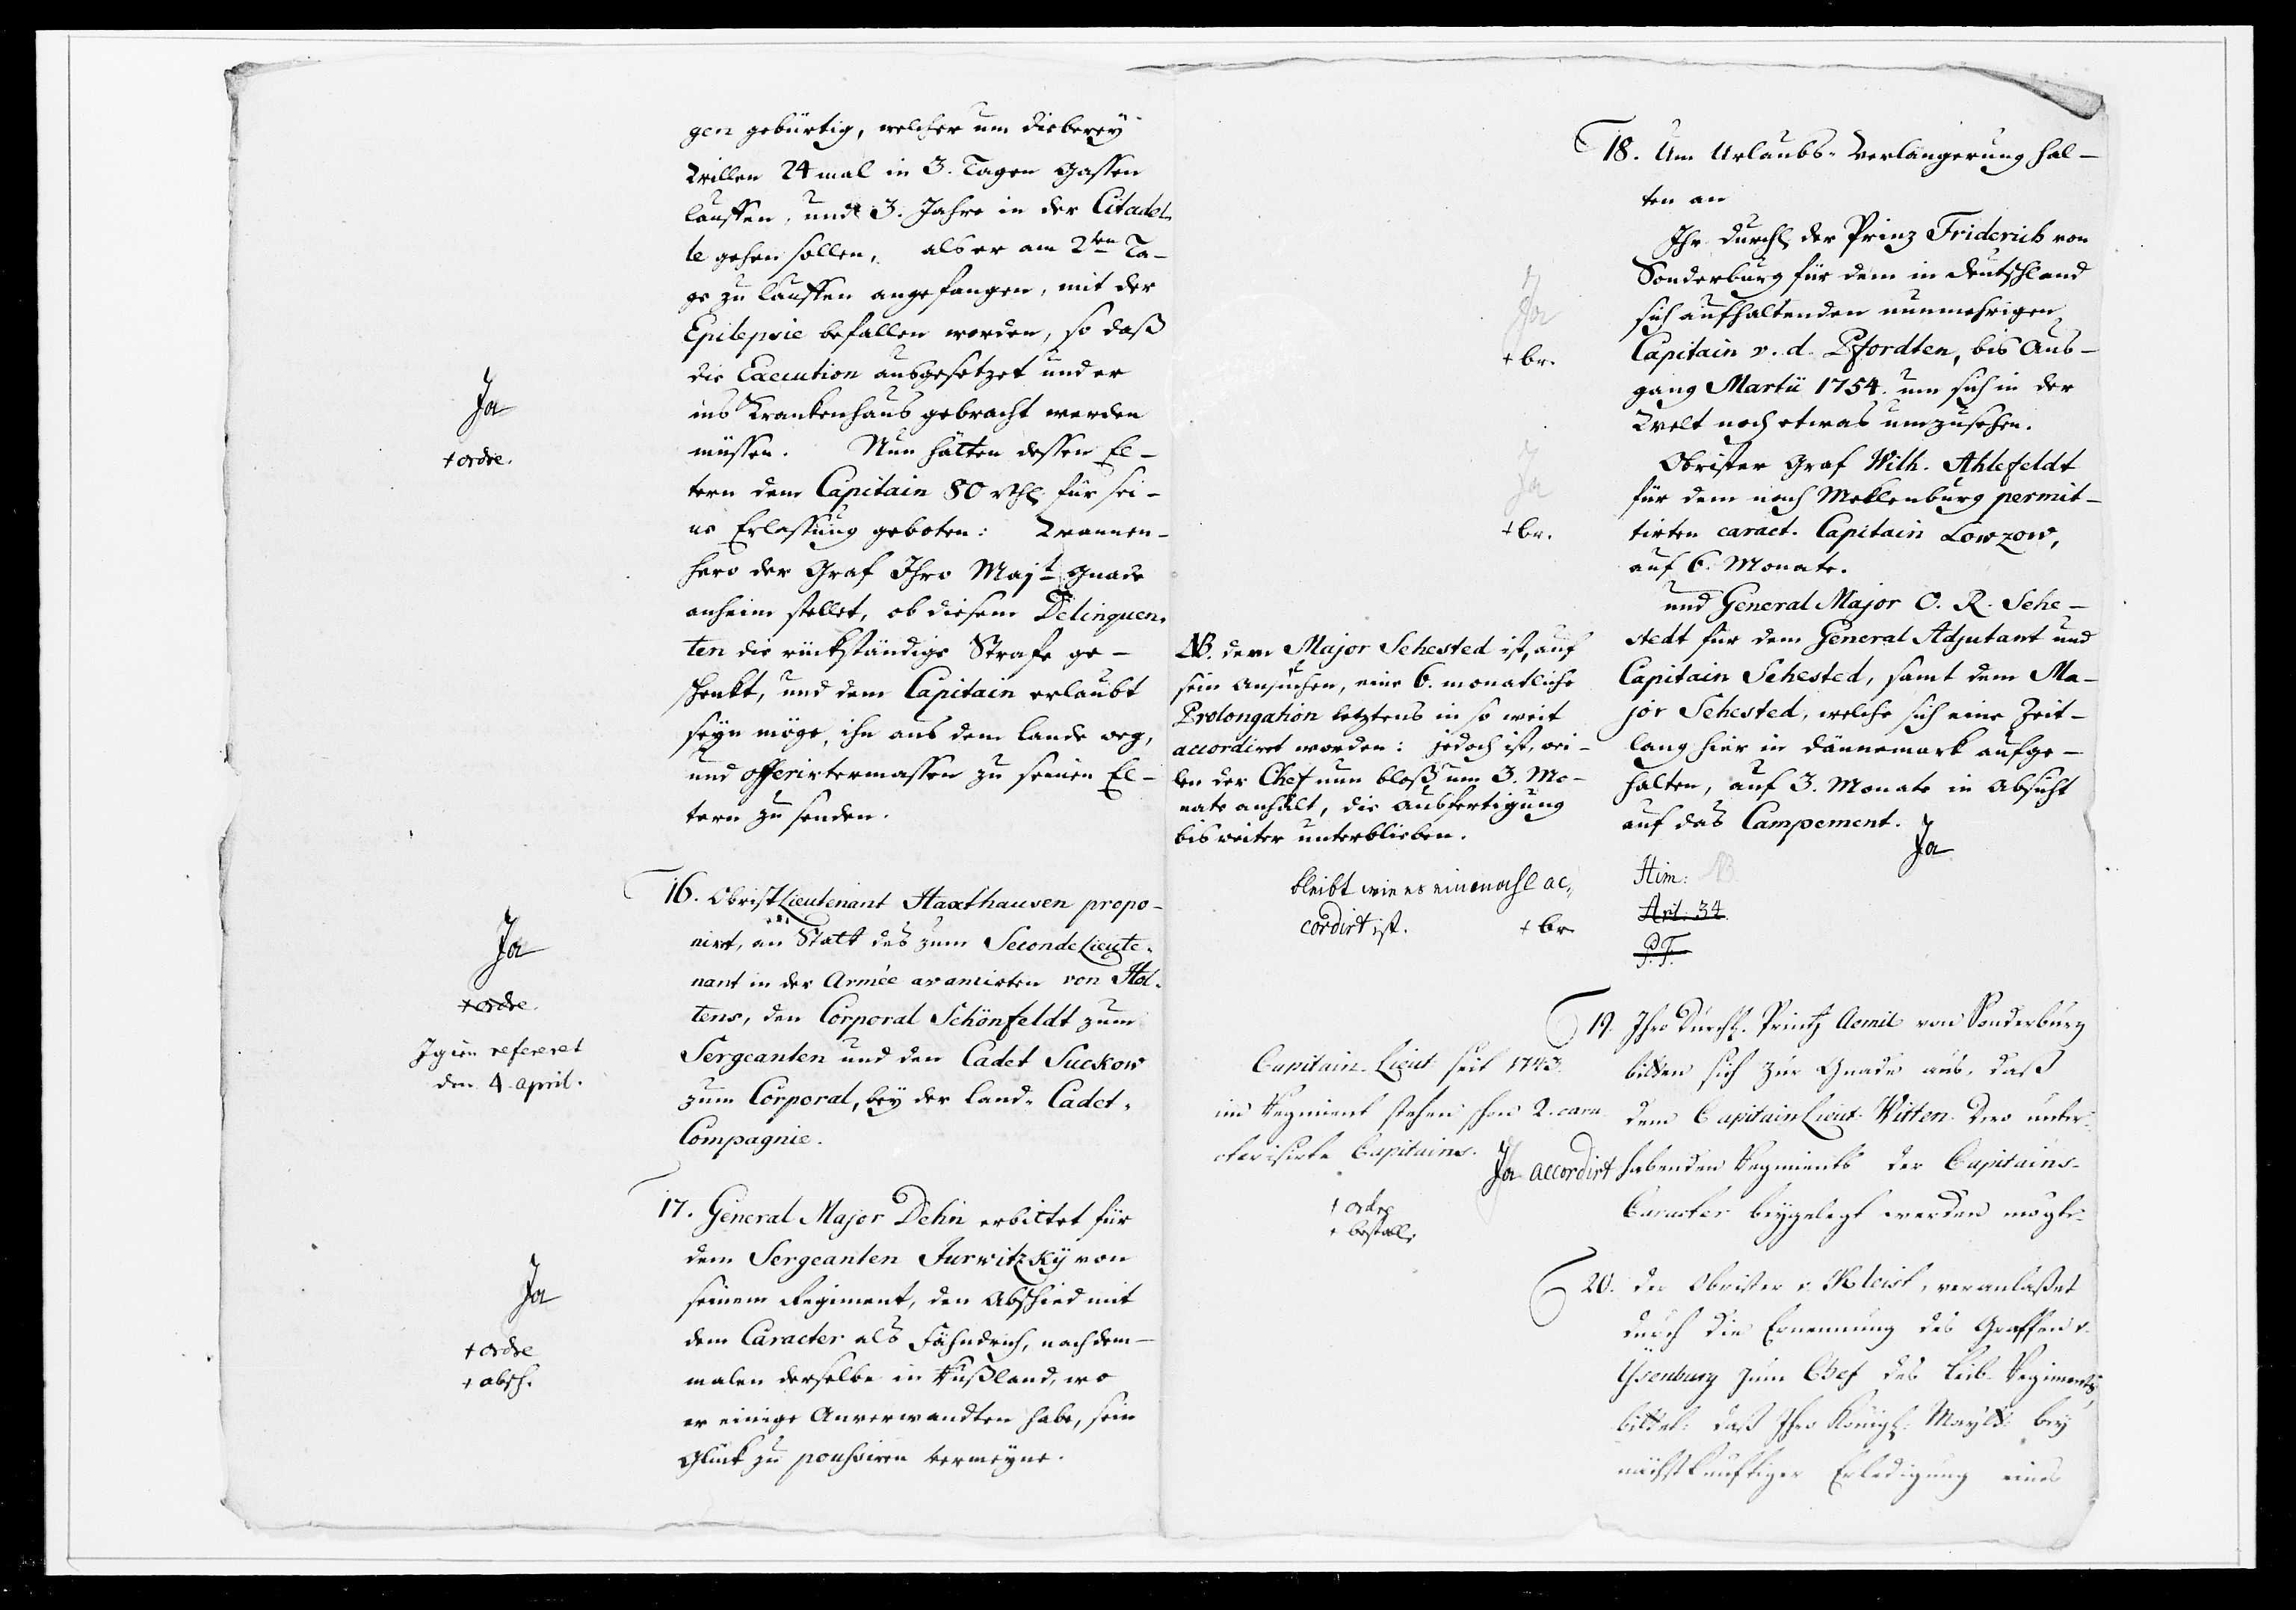 gen gebürtig, welcher um dieberey
Willen 24 mal in 3. Tagen Gassen
lauffen, und 3. Jahre in der Citadel-
le gehen sollen, als er am 2ten Ta-
ge zu lauffen angefangen, mit der
Epilepsie befallen worden, so daß
die Execution ausgesetzet und er
ins Krankenhaus gebracht werden
müssen. Nun hätten dessen El-
tern dem Capitain 80 Rthl für sei-
ne Erlassung geboten: Wannen-
hero der Graf Ihro Majt Gnade
anheim stellet, ob diesem Delinquen-
ten die rückständige Strafe ge-
schenkt, und dem Capitain erlaubt
seyn möge, ihn aus dem Lande weg,
und offerirtermassen zu seinen El-
tern zu senden.
Ja
+ ordre.
16. Obrist Lieutenant Haxthausen propo-
nirt, an Statt des zum Seconde Lieute-
nant in der Armée avancirten von Hol-
tens, den Corporal Schönfeldt zum
Sergeanten und den Cadet Suckow
zum Corporal, bey der Land-Cadet-
Compagnie.
Ja
+ ordre.
Igien refereret
den 4. april.
17. General Major Dehn erbittet für
dem Sergeanten Jurwitzky von
seinem Regiment, den Abschied mit
dem Caracter als Fähndrich, nachdem-
malen derselbe in Rußland, wo
er einige Anverwandten habe, sein
Glück zu poussiren vermeyne.
Ja
+ ordre
+ absch.
18. Um Urlaubs-Verlängerung hal-
ten an
Ihr Durchl der Prinz Friderich von
Sonderburg für dem in Deutschland
sich aufhaltenden nunmehrigen
Capitain v. d. Pfordten, bis Aus-
gang Martii 1754. um sich in der
Welt noch etwas umzusehen.
Ja
+ br.
Obrister Graf Wilh. Ahlefeldt
für dem nach Meklenburg permit-
tirten caract. Capitain Lowzow,
auf 6. Monate.
Ja
+ br.
und General Major O. R. Sehe-
stedt für dem General Adjutant und
Capitain Sehested, samt dem Ma-
jor Sehested, welche sich eine Zeit-
lang hier in Dännemark aufge-
halten, auf 3. Monate in Absicht
auf das Campement.
Ja
NB. dem Major Sehested ist, auf
sein Ansuchen, eine 6. monatliche
Prolongation letztens in so weit
accordiret worden: jedoch ist, wei-
len der Chef nun bloß um 3. Mo-
nate anhält, die Ausfertigung
bis weiter unterblieben.
bleibt wie es einmahl ac-
cordirt ist. + br
Him: NB
Art. 34
P. T.
19. Ihro Durchl. Printz Aemil von Sonderburg
bitten sich zur Gnade aus, daß
dem Capitain Lieut. Witten Dero unter-
habenden Regiments der Capitains-
Caracter beygelegt werden mögte.
Capitain-Lieut seit 1743.
im Regiment stehen schon 2. cara-
cterisirte Capitains.
Ja accordirt
+ ordre
+ bestall.
20. Der Obrister v. Kleist, veranlaßet
durch die Ernennung des Graffen v.
Ysenburg zum Chef des Leib-Regiments,
bittet: daß Ihro Königl: Mayst: bey
nächstkünftiger Erledigung eines